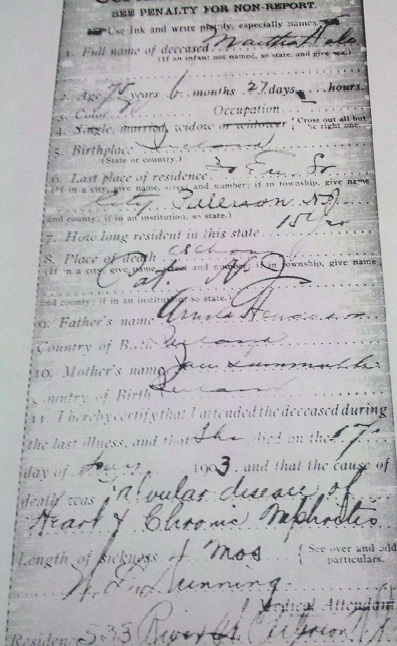 SEE PENALTY FOR NON-REPORT.
Use Ink and write plainly, especially names.
1. Full name of deceased Martha
(If an infant not named, so state, and give sex.)
2. Age 75 years 6 months 27 days hours.
3. Color Occupation
4. Single, married, widow or widower { Cross out all but the right one.
5. Birthplace Ireland
(State or country.)
6. Last place of residence
(If in a city, give name, street and number; if in township, give name
City Paterson N.J.
and county; if in an institution, so state.)
7. How long resident in this state 15
8. Place of death
(If in a city, give name, street and number; if in township, give name
Pat. NJ
and county; if in an institution so state.)
9. Father's name
Country of Birth Ireland
10. Mother's name Jane
Country of Birth Ireland
11. I hereby certify that I attended the deceased during
the last illness, and that she died on the 17
day of 1903, and that the cause of
death was Valvular disease of
Heart & Chronic Nephritis
Length of sickness 4 mos { See over and add particulars.
Dunning
Medical Attendant
Residence River St Paterson N.J.